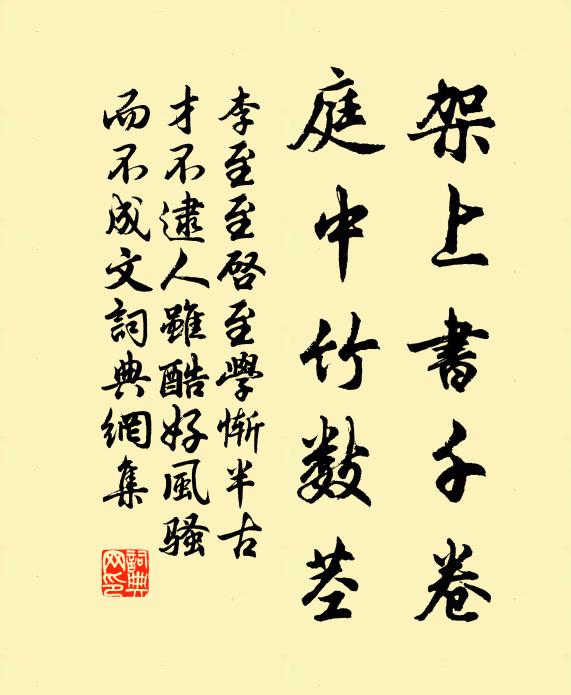 架上書千卷
庭中竹數莖
李至至啓至學慚半古
才不逮人雖酷好風騷
而不成文詞典網集
詞典网印